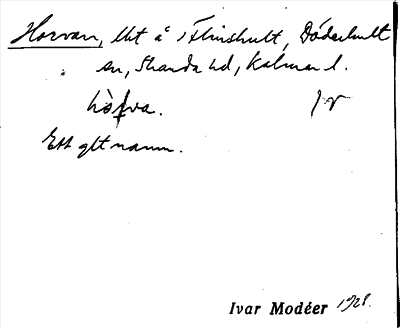 Horvan, lht å i Flinshult, Döderhult
sn, Stranda hd, Kalmar l.
Ett glt namn.
Ivar Modéer 1928.